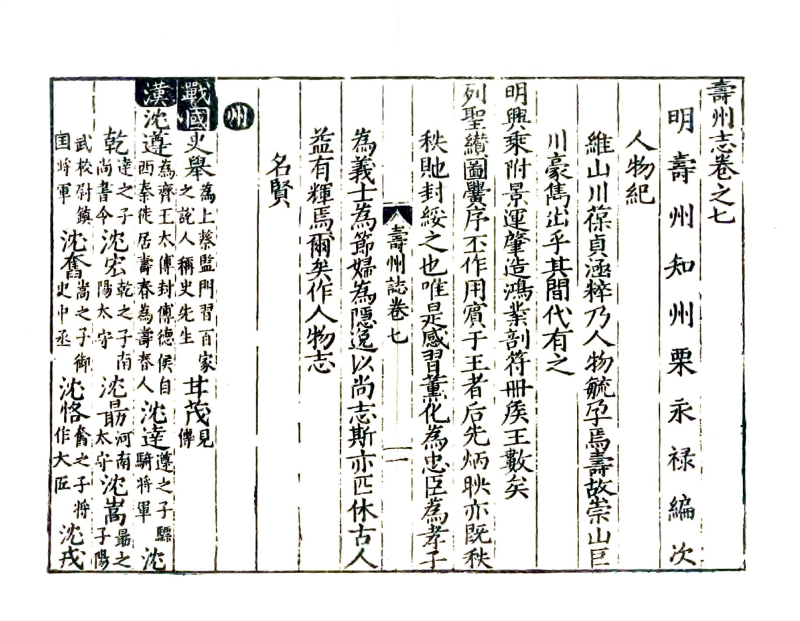 壽州志卷之七
明壽州知州栗永禄編次
人物紀
維山川葆貞涵粹乃人物毓孕焉壽故崇山巨
川豪雋出乎其間代有之
明興乘附景運肇造鴻業剖符冊矦王數矣
列聖纘圖釁序丕作用賓于王者后先炳映亦既秩
秩貤封綏之也唯是感習薰化為忠臣為孝子
壽州誌卷七 一
為義士為節婦為隱逸以尚志斯亦匹休古人
益有輝焉爾矣作人物志
名賢
州
戰國史舉為上蔡監門習百家之說人稱史先生甘茂見傳
漢沈遵為齊王太傅封傳德侯自西秦徙居壽春為壽春人沈達遵之子驃騎將軍沈
乾達之子尚書令沈宏乾之子南陽太守沈勗河南太守沈嵩勗之子陽
武校尉鎮国將軍沈奮嵩之子御史中丞沈恪奮之子將作大匠沈戎